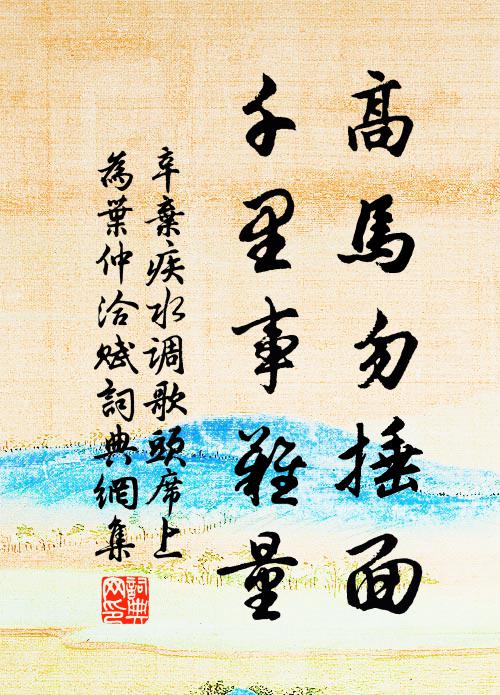 高馬勿捶面
千里事難量
辛棄疾水调歌頭席上
為葉仲洽赋詞典網集
詞典
网印